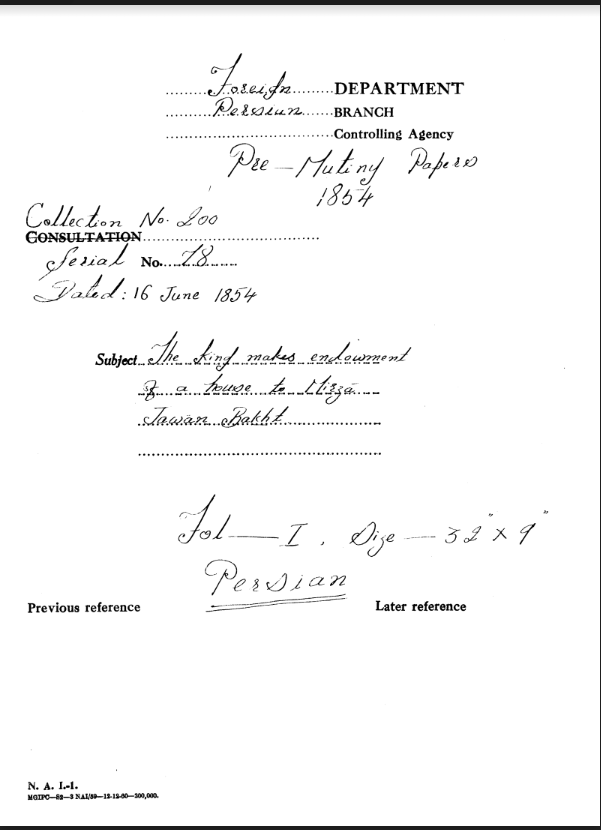 Foreign DEPARTMENT
Persian BRANCH
Controlling Agency
Pre-Mutiny Papers
1854
Collection No. 200
CONSULTATION
Serial No. 78
Dated: 16 June 1854
Subject The King makes endowment
of a house to Mirza
Jawan Bakht
Fol — I, Size — 32" x 9"
Persian
Previous reference Later reference
N. A. I.-1.
MGIPC—S2—3 NAI/59—12-12-60—200,000.